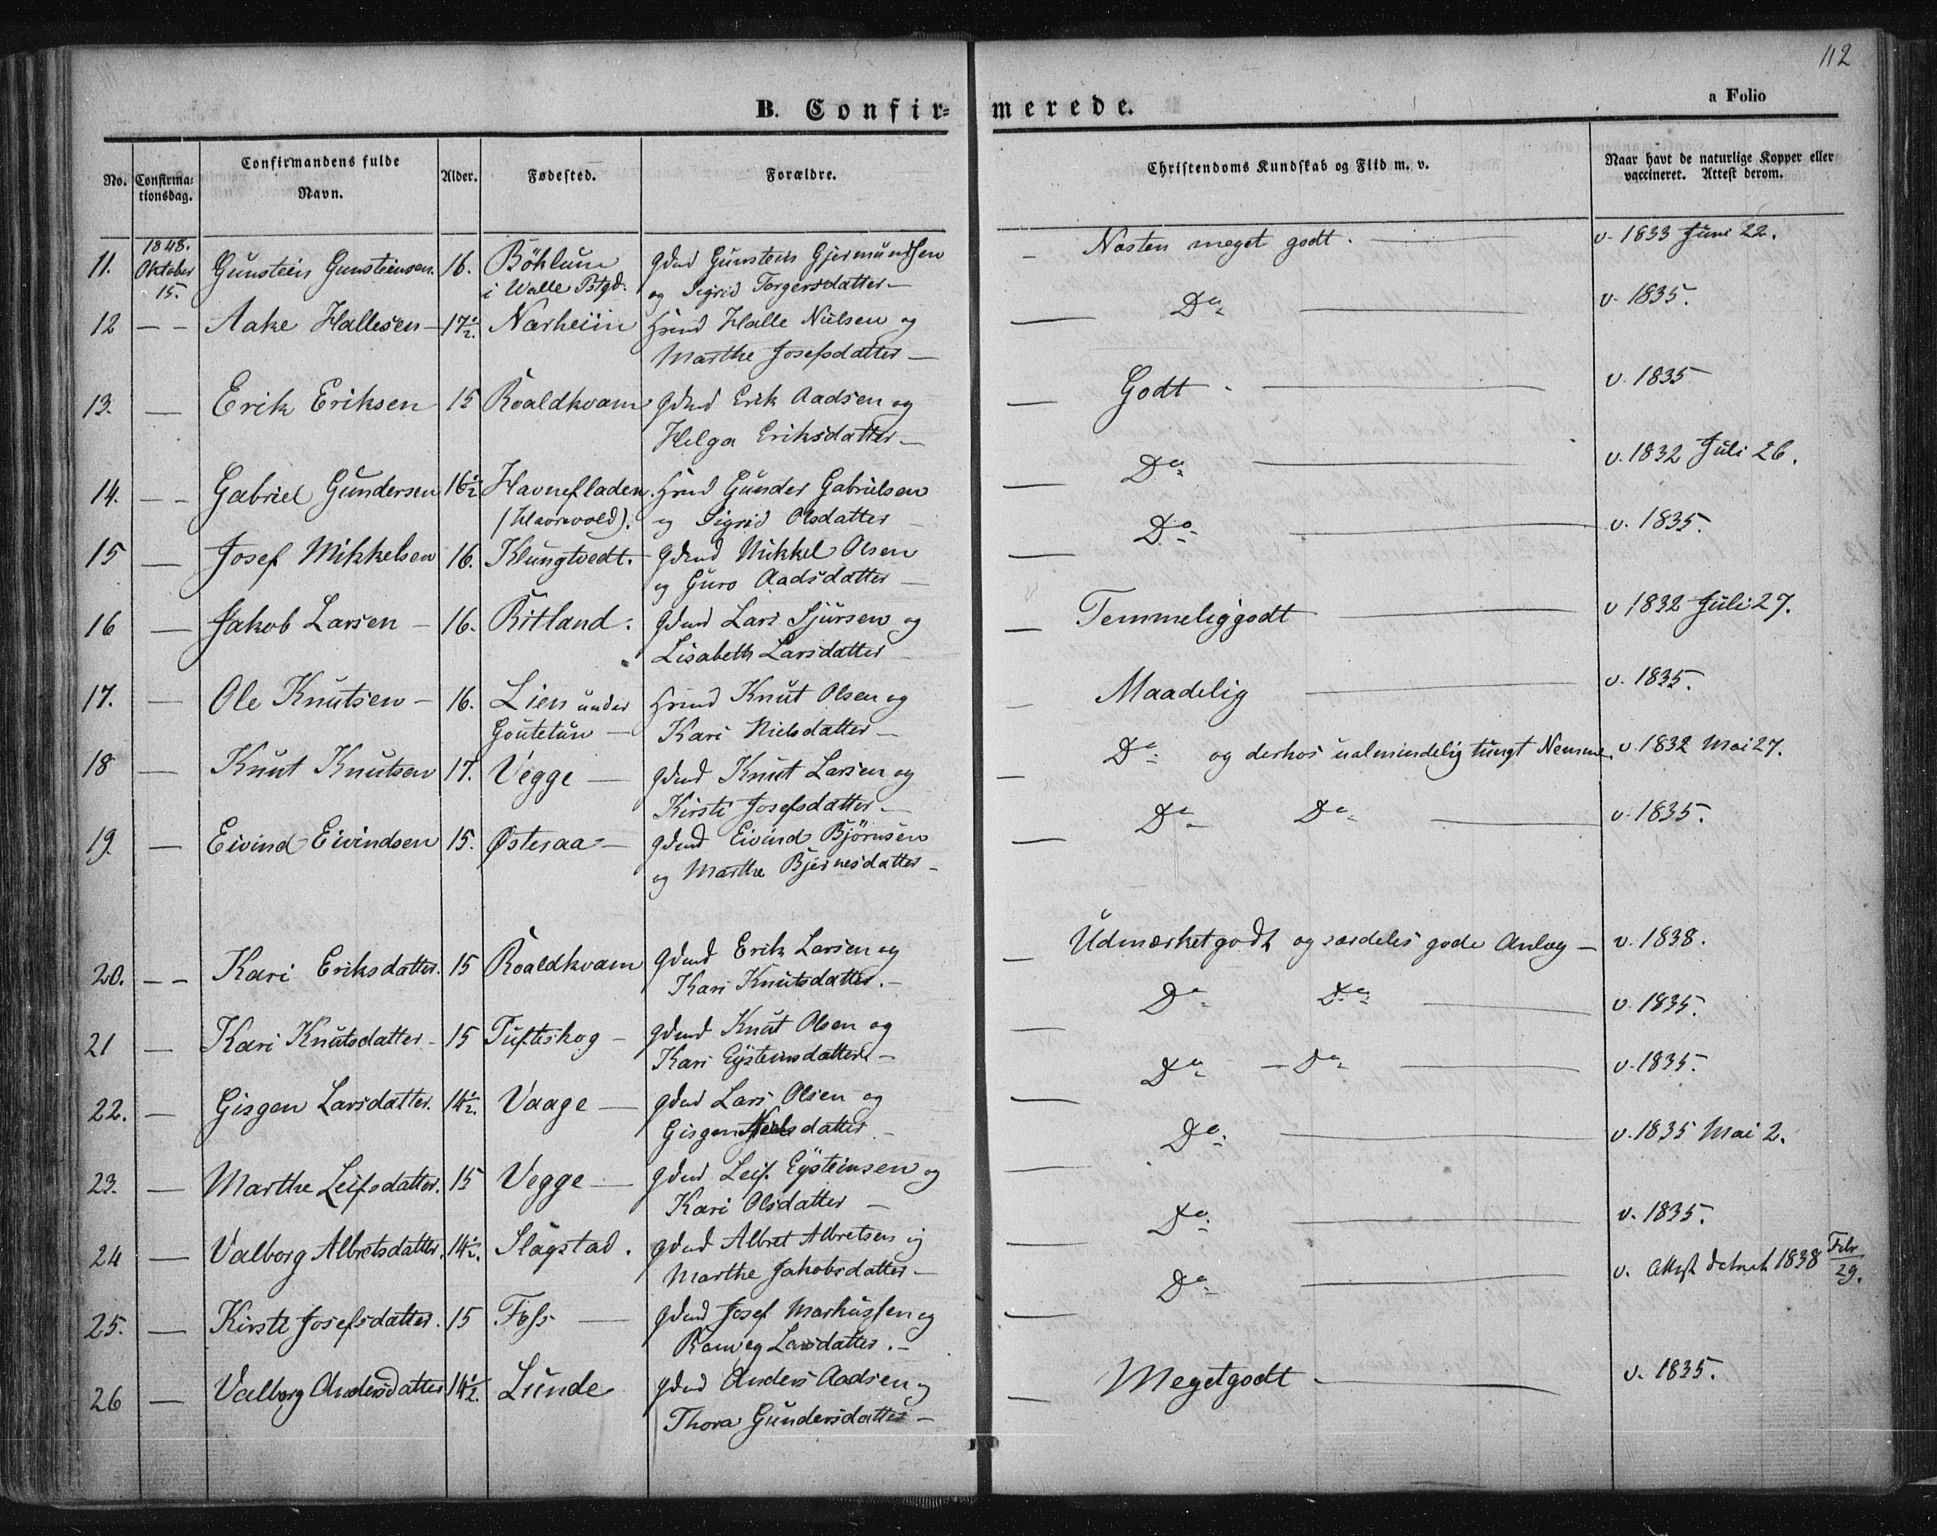 112
a Folio
B. Confir- merede.
No.
Confirma-
tionsdag.
Confirmandens fulde
Navn.
Alder.
Fødested.
Forældre.
Christendoms Kundskab og Flid m. v.
Naar havt de naturlige Kopper eller
vaccineret. Attest derom.
11. 1848. Oktober 15. Gunstein Gunsteinsen. 16. Bøhlum i Walle Ptgd. Gdmd Gunstein Gjermundsen
og Sigrid Torgersdatter — Næsten meget godt. — v. 1833 Juni 22.
12 — — Aake Hallesen — 17½. Nærheiin Hmd Halle Nielsen og
Marthe Josefsdatter — Do — v. 1835.
13. — Erik Eriksen 15 Roaldkvam Gdmd Erik Aadsen og
Helga Eriksdatter — Godt — v. 1835
14. — — Gabriel Gundersen 16½ Havnefladen (Havrevold). Hmd Gunder Gabrielsen
og Sigrid Olsdatter — Do — v. 1832 Juli 26.
15 — Josef Mikkelsen 16. Klungtvedt. Gdmd Mikkel Olsen
og Guro Aadsdatter — Do — v. 1835.
16 — Jakob Larsen — 16. Ritland. Gdmd Lars Sjursen og
Lisabeth Larsdatter — Temmelig godt — v 1832 Juli 27.
17. — Ole Knutsen — 16. Lien under Goutetun — Hmd Knut Olsen og
Kari Nielsdatter — Maadelig — v. 1835.
18 — Knut Knutsen 17. Vegge — Gdmd Knut Larsen og
Kirsti Josefsdatter — Do og derhos ualmindelig tungt Nemme. v. 1832 Mai 27.
19. — Eivind Eivindsen 15. Østeraa — Gdmd Eivind Bjørnsen
og Marthe Bjørnesdatter — Do Do — v. 1835.
20. — — Kari Eriksdatter. 15 Roaldkvam Gdmd Erik Larsen og
Kari Knutsdatter. — Udmærket godt og særdeles gode Anlæg — v. 1838.
21 — Kari Knutsdatter — 15 Tufteskog — Gdmd Knut Olsen og
Kari Eysteinsdatter — Do Do — v. 1835.
22. — Gisgen Larsdatter. 14½. Vaage — Gdmd Lars Olsen og
Gisgen Nielsdatter — Do — Do — v. 1835.
23. — Marthe Leifsdatter. 15 Vegge — Gdmd Leif Eysteinsen og
Kari Olsdatter — Do. — v. 1835 Mai 2.
24 — Valborg Albretsdatter. 14½. Slagstad. Gdmd Albret Albretsen og
Marthe Jakobsdatter — Do. — v. 1835.
25. — Kirsti Josefsdatter. 15 Foss — Gdmd Josef Markussen og
Larsdatter. — Do — v. Attest 1838 Febr 29.
26 — Valborg Andersdatter 14½ Lunde Gdmd Anders Aadsen og
Thora Gundersdatter — Meget godt — v. 1835.